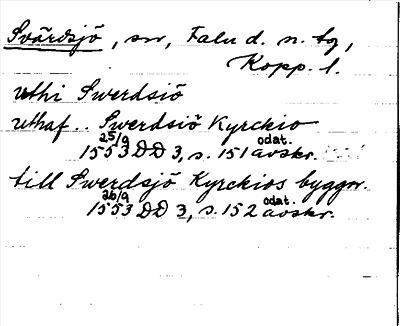 Svärdsjö, sn, Falu d. n. tg,
Kopp. l.
uthi Swerdsiö
uthaf.. Swerdsiö Kyrckio
25/9 odat.
1553 DD 3, s. 151 avskr.
till Swerdsjö Kyrckios byggn.
26/9 odat.
1553 DD 3, s. 152 avskr.